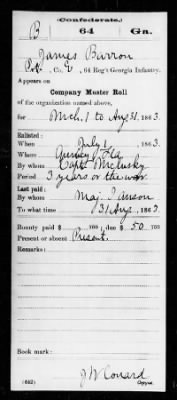 Confederate.
B 64 Ga.
James Barron
Pvt., Co. E, 64 Reg't Georgia Infantry.
Appears on
Company Muster Roll
of the organization named above,
for Mch. 1 to Aug 31, 1863.
Enlisted:
When July 1, 1863.
Where Quincy Fla
By whom Capt.
Period 3 years or the war
Last paid:
By whom Maj.
To what time 31 Aug, 1863.
Bounty paid $ 100; due $ 50 100
Present or absent Present.
Remarks:
Book mark:
J W Conard
(642) Copyist.